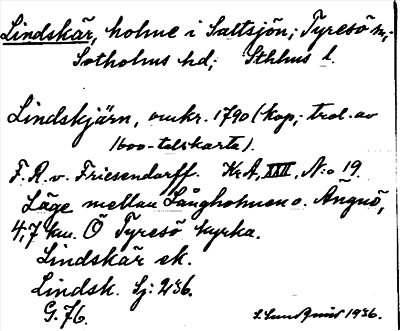 Lindskär, holme i Saltsjön; Tyresö sn;
Sotholms hd; Sthlms l.
Lindskjärn, omkr. 1790 (kop; trol. av
1600-talskarta).
F. R. v. Friesendorff. KrA, XXII, N:o 19.
Läge mellan Långholmen o. Ängsö,
4,7 km. Ö Tyresö kyrka.
Lindskär ek.
Lindsk. Sj: 236.
G. 76.
1936.